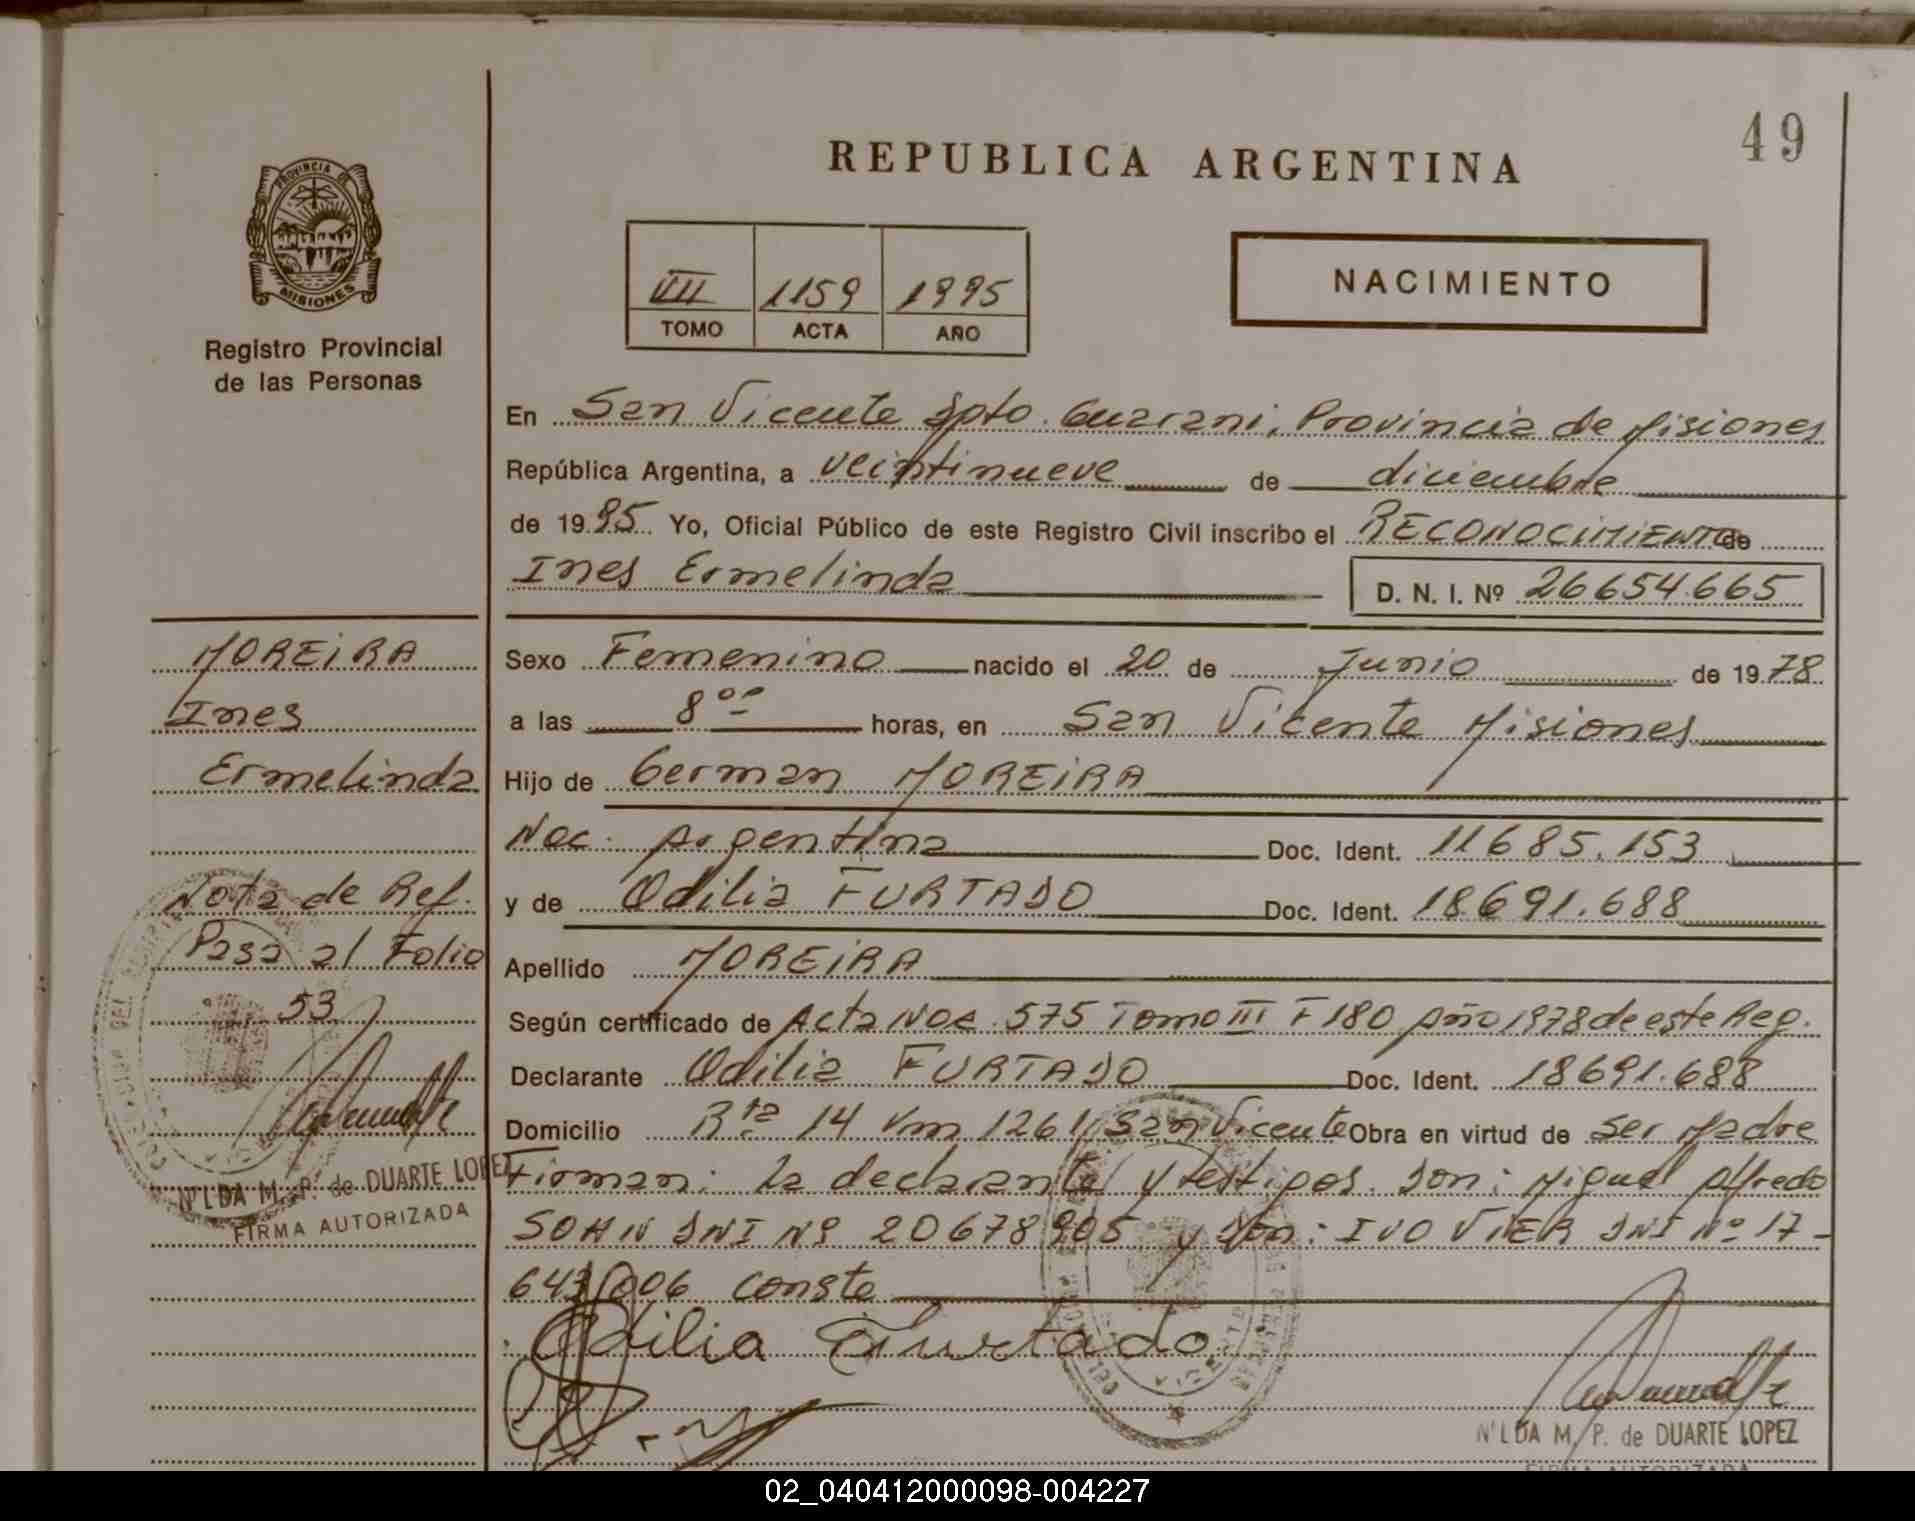 49
REPUBLICA ARGENTINA
PROVINCIA DE
MISIONES
Registro Provincial
de las Personas
VII 1159 1995
TOMO ACTA AÑO
NACIMIENTO
En San Vicente Dpto. Guarani, Provincia de Misiones
República Argentina, a veintinueve de diciembre
de 1995 Yo, Oficial Público de este Registro Civil inscribo el RECONOCIMIENTO de
Ines Ermelinda D. N. I. Nº 26654.665
MOREIRA
Ines
Ermelinda
Nota de Ref.
Pasa al Folio
53
NILDA M. P. de DUARTE LOPEZ
FIRMA AUTORIZADA
Sexo Femenino nacido el 20 de Junio de 1978
a las 8 00 horas, en San Vicente Misiones
Hijo de German MOREIRA
Nac. Argentina Doc. Ident. 11685.153
y de Odilia FURTADO Doc. Ident. 18691.688
Apellido MOREIRA
Según certificado de Acta Nac. 575 Tomo III F 180 Año 1978 de este Reg.
Declarante Odilia FURTADO Doc. Ident. 18691.688
Domicilio Rta 14 Km 1261 San Vicente Obra en virtud de ser Madre
Firman: la declarante y testigos. Don: Miguel Alfredo
SOHN DNI Nº 20678905 y Don: IVO VIER DNI Nº 17-
643006 conste
Odilia Furtado
NILDA M. P. de DUARTE LOPEZ
FIRMA AUTORIZADA
02_040412000098-004227